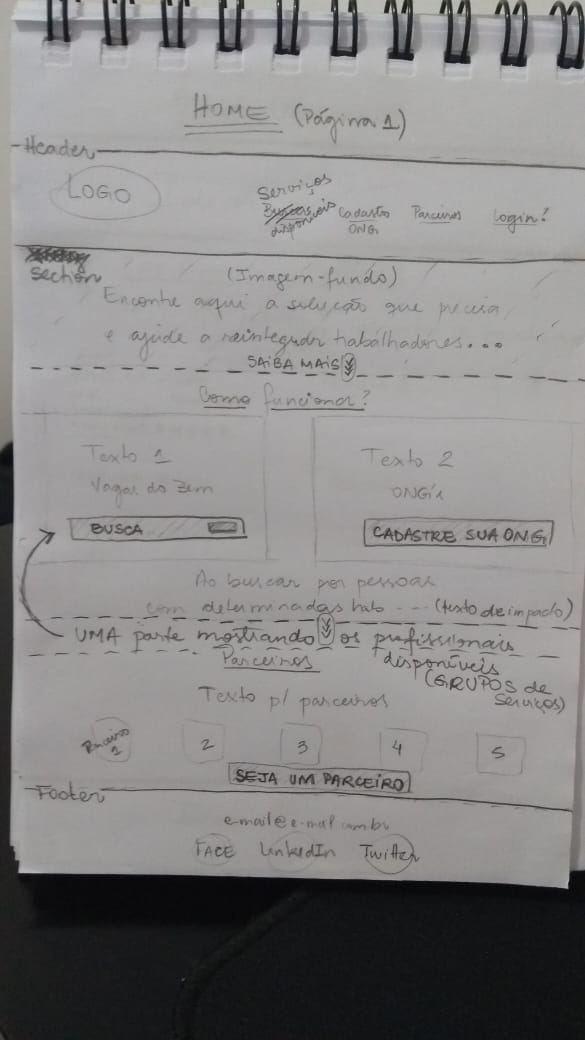 HOME (Página 1)
Header
LOGO
Serviços
disponíveis
Cadastro
ONG
Parceiros
Login?
Section
(Imagem-fundo)
Encontre aqui a solução que precisa
e ajude a reintegrar trabalhadores...
SAIBA MAIS
Como funciona?
Texto 1
Vagas do Bem
BUSCA
Texto 2
ONG's
CADASTRE SUA ONG
Ao buscar por pessoas
com determinadas hab ... (texto de impacto)
UMA parte mostrando os profissionais
disponíveis
(GRUPOS de
serviços)
Parceiros
Texto p/ parceiros
Parceiro
1
2
3
4
5
SEJA UM PARCEIRO
Footer
FACE LinkedIn Twitter